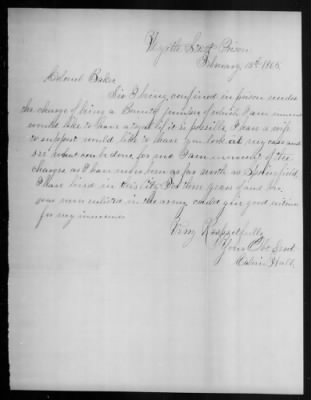 Myrtle St Prison
February 15th 1865
Colonel Baker
Sir I being confined in prison under
the charge of being a Bounty jumper of which I am innocent
would like to have a trial if it is possible I have a wife
to support would like to have you look at my case and
see what can be done for me I am innocent of the
charges as I have never been as far north as Springfield
I have lived in this City for three years and
men enlisted in the army could give good
for my
Very Respectfully
Your Obt Servt